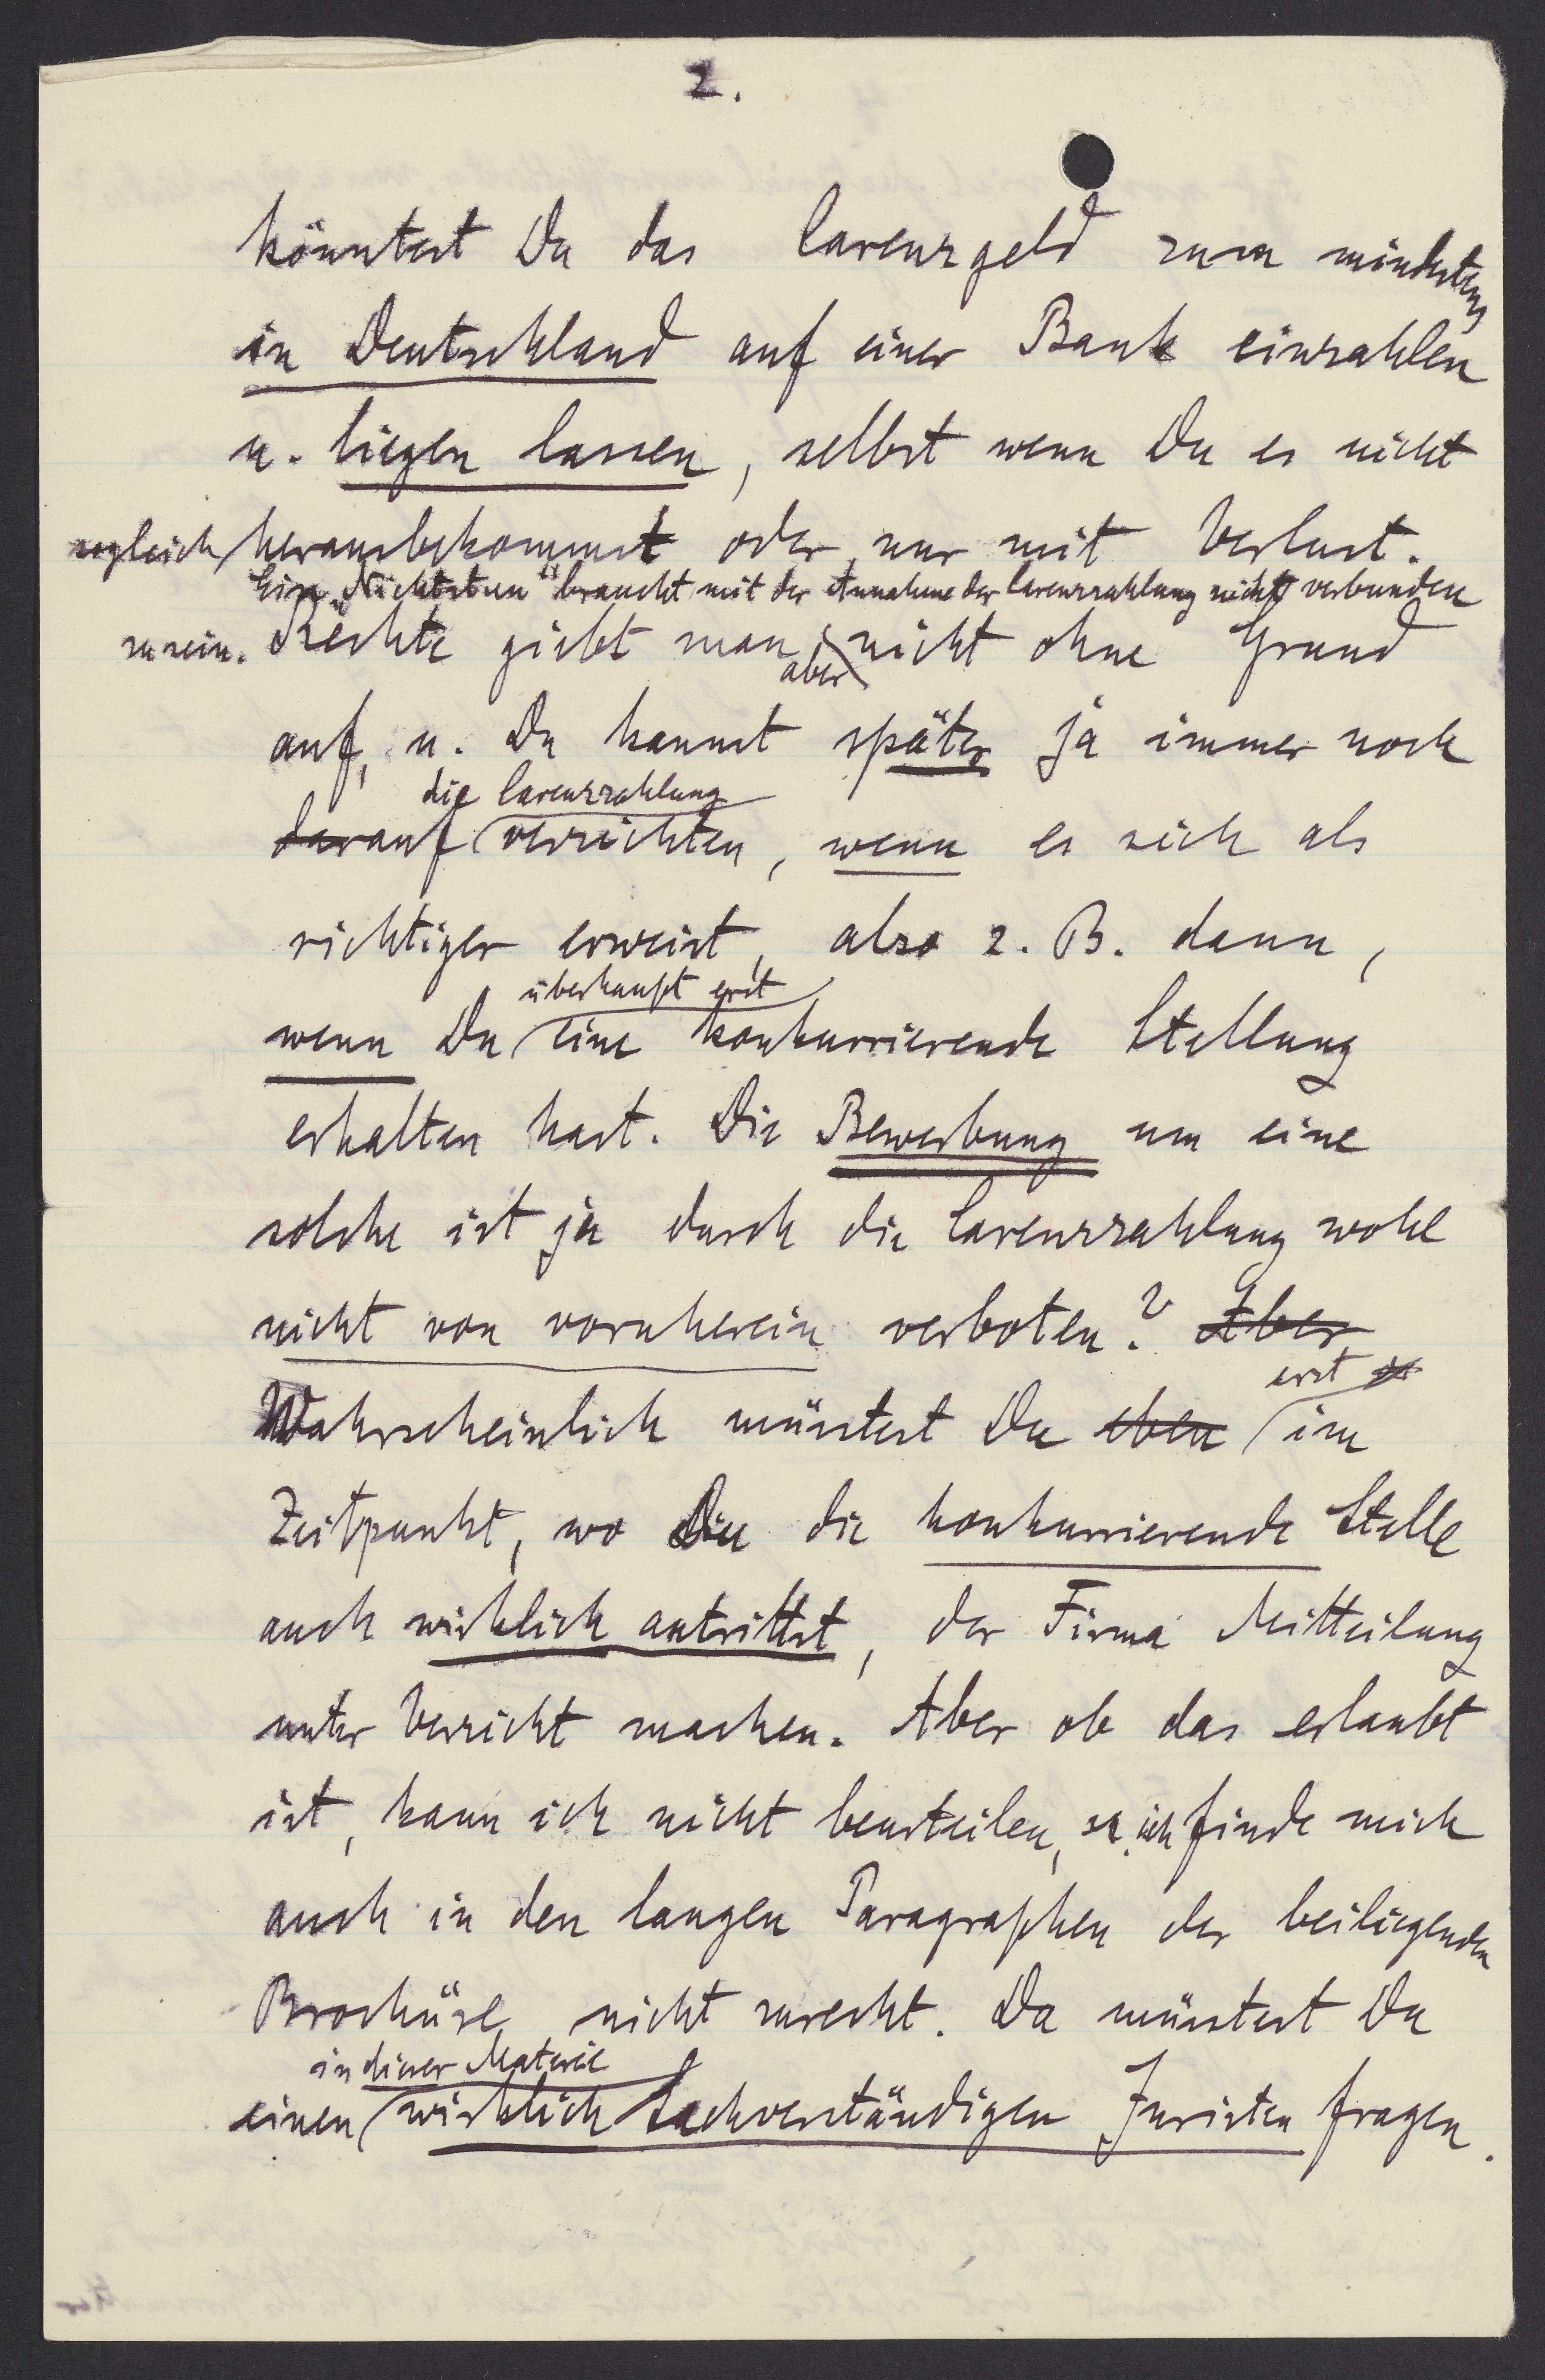 2.
könntest Du das Carenzgeld zum mindesten
in Deutschland auf einer Bank einzahlen
u. liegen lassen, selbst wenn Du es nicht
sogleich herausbekommst oder nur mit Verlust.
Ein „Nichtstun" braucht mit der Annahme der Carenzzahlung nicht verbunden
zu sein. Rechte giebt man aber nicht ohne Grund
auf, u. Du kannst später ja immer noch
die Carenzzahlung
darauf verzichten, wenn es sich als
richtiger erweist, also z. B. dann,
überhaupt erst
wenn Du eine konkurrierende Stellung
erhalten hast. Die Bewerbung um eine
solche ist ja durch die Carenzzahlung wohl
nicht von vornherein verboten? Aber
erst
Wahrscheinlich müsstest Du eben im
Zeitpunkt, wo Du die konkurrierende Stelle
auch wirklich antrittst, der Firma Mitteilung
unter Verzicht machen. Aber ob das erlaubt
ist, kann ich nicht beurteilen, ich finde mich
auch in den langen Paragraphen der beiliegenden
Broschüre nicht zurecht. Da müsstest Du
in dieser Materie
einen wirklich Sachverständigen Juristen fragen.